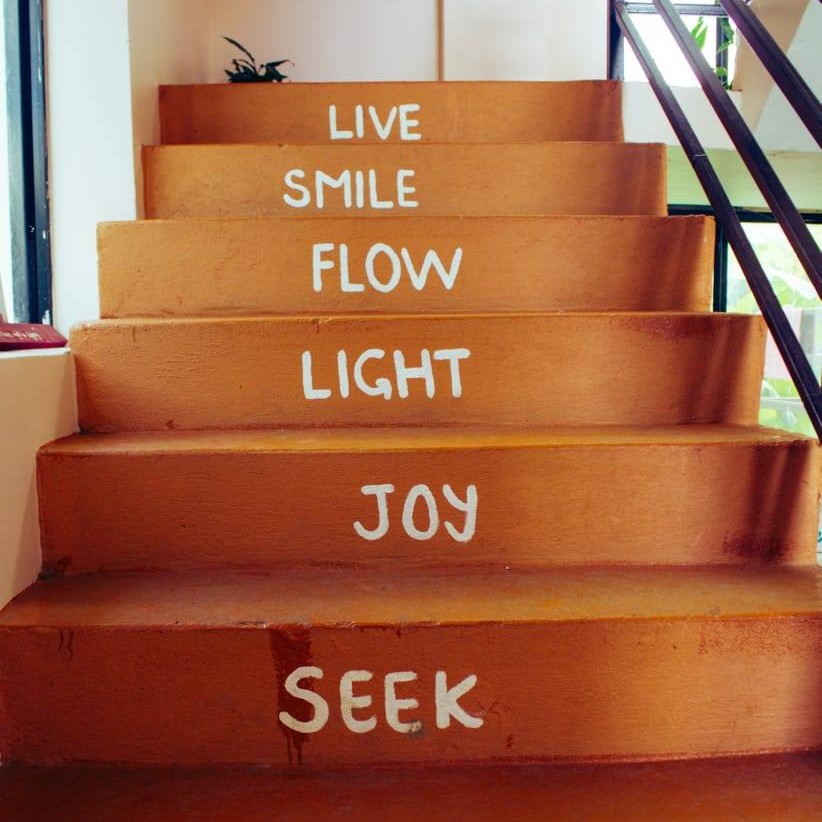 LIVE
SMILE
FLOW
LIGHT
JOY
SEEK